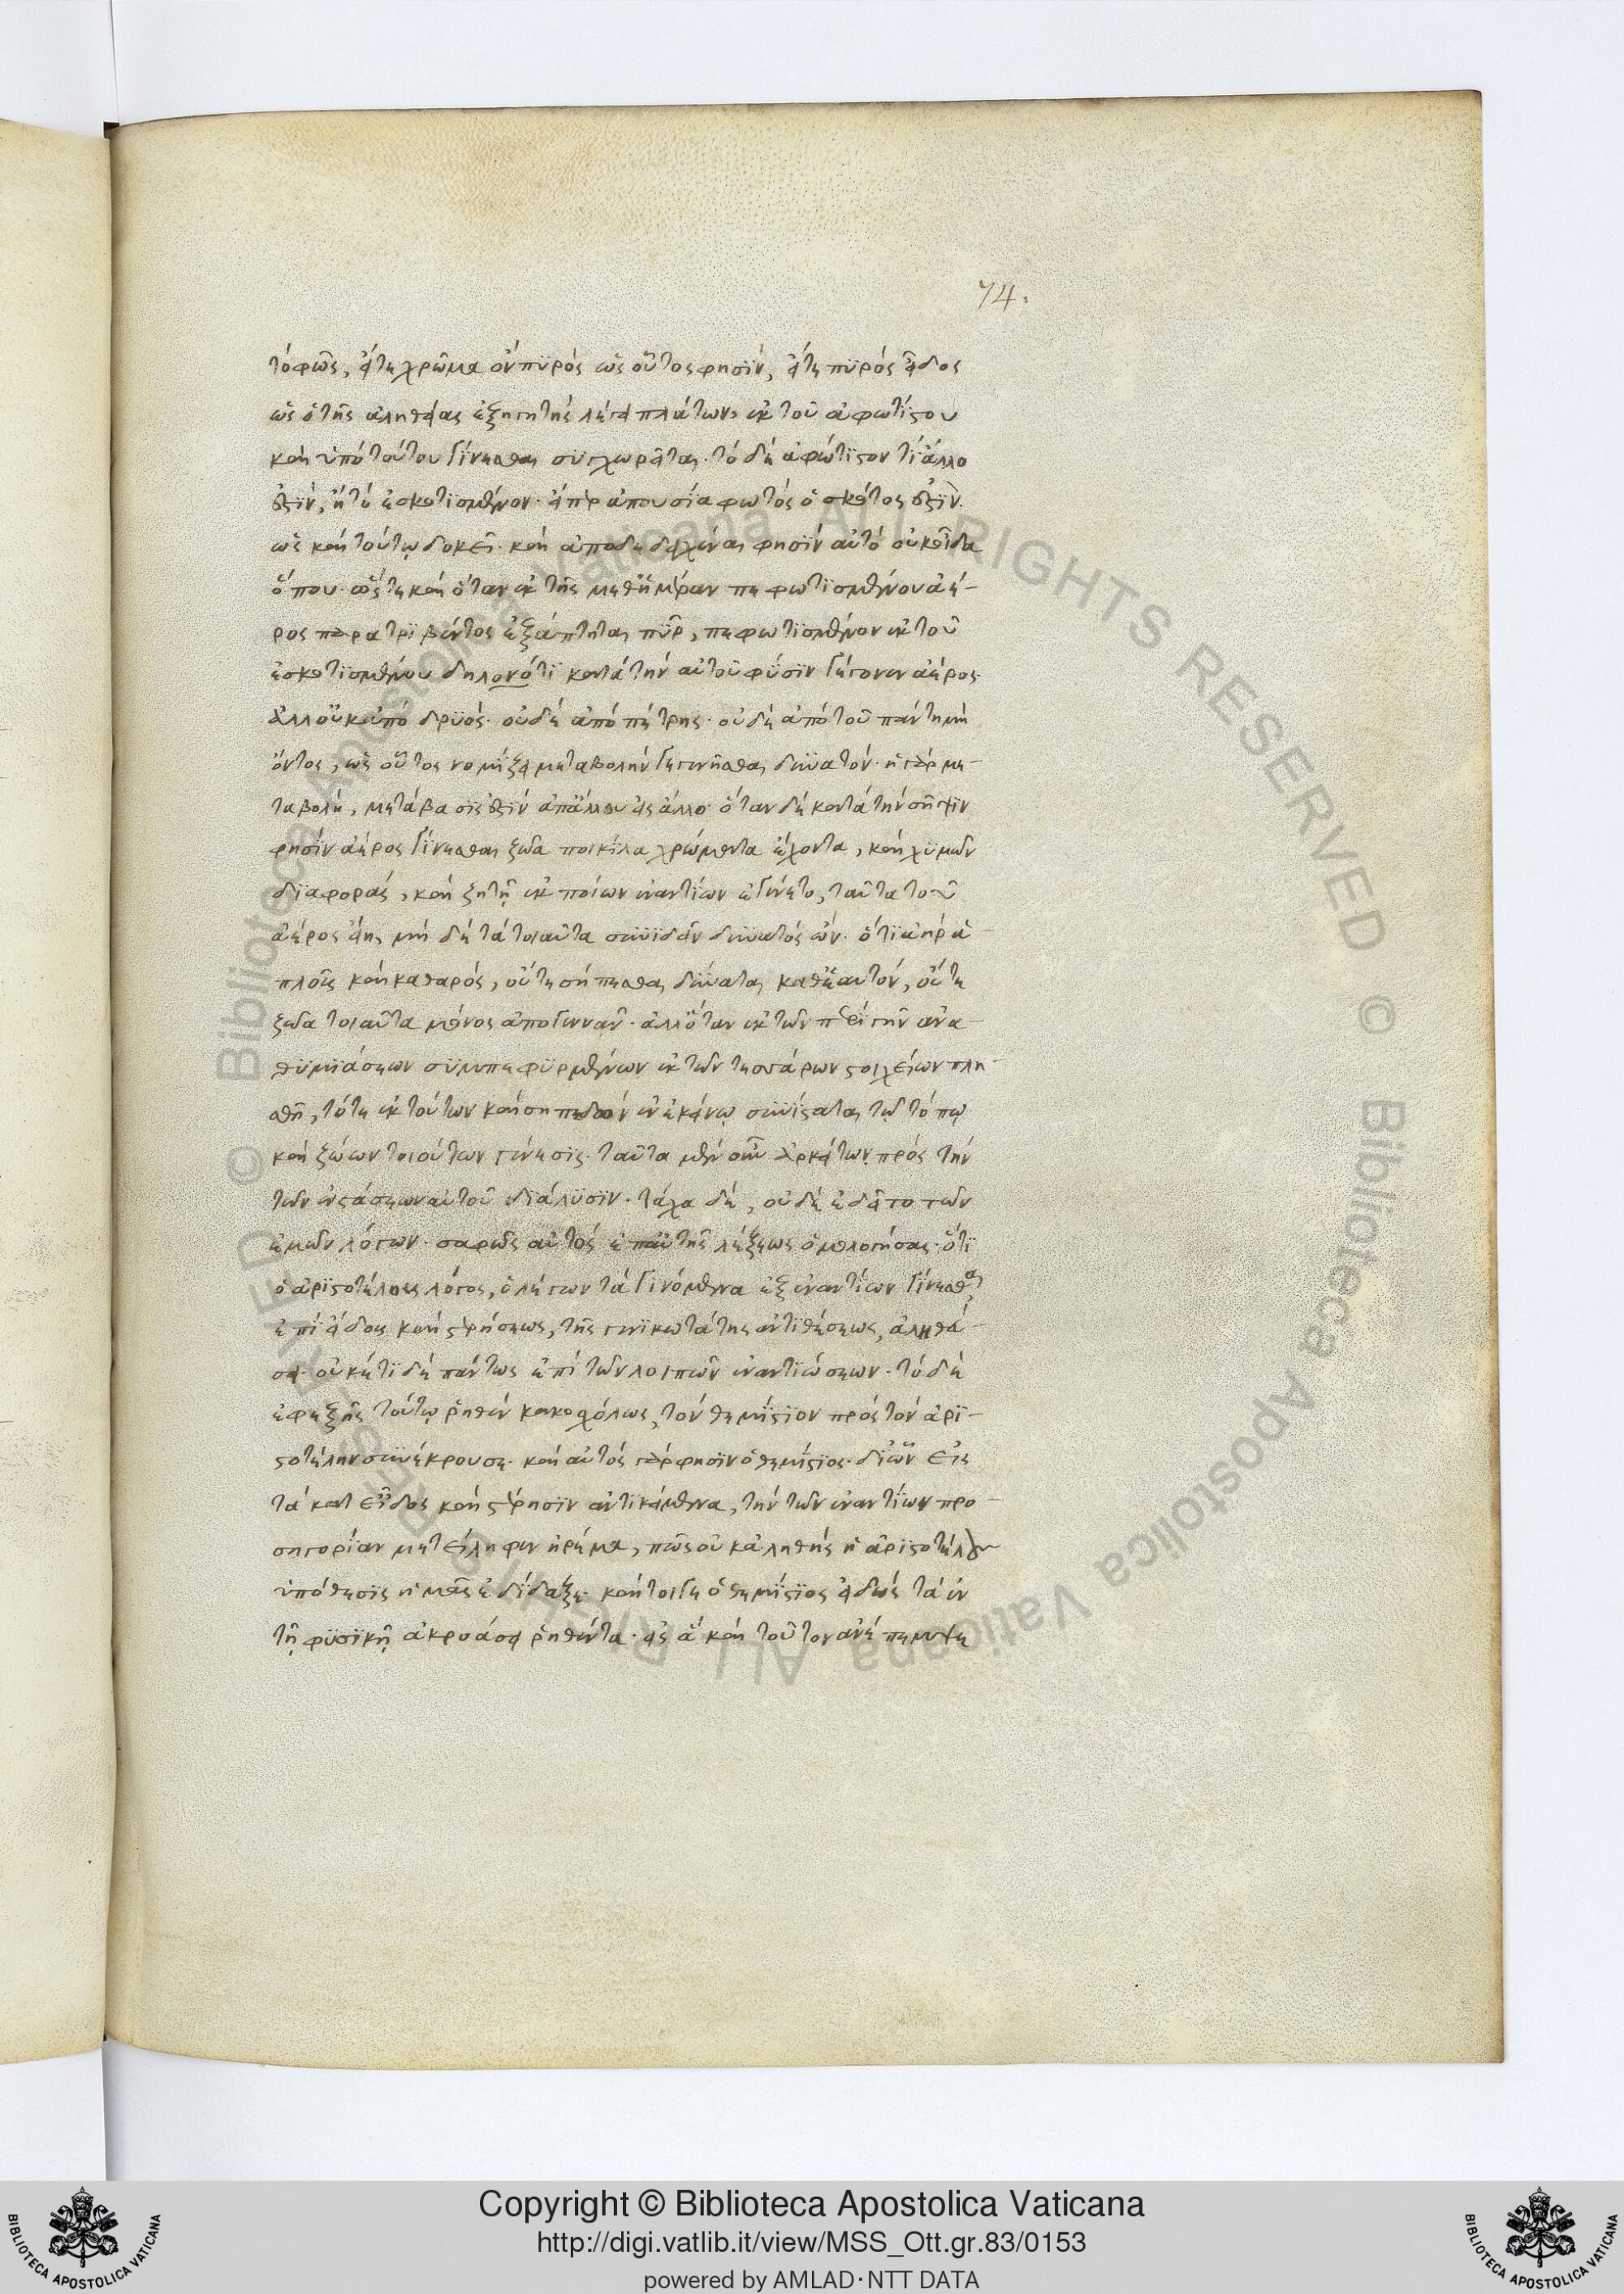 74.
τὸ φῶς, εἴτε χρῶμα ὂν πυρὸς ὡς οὗτος φησὶν, εἴτε πυρὸς εἶδος
ὡς ὁ τῆς ἀληθείας ἐξηγητὴς λέγει πλάτων, ἐκ τοῦ ἀφωτίστου
καὶ ὑπὸ τούτου γίνεσθαι συγχωρεῖται. τὸ δὲ ἀφώτιστον τί ἄλλο
ἐστὶν, ἢ τὸ ἐσκοτισμένον. εἴπερ ἀπουσία φωτὸς ὁ σκότος ἐστὶν.
ὡς καὶ τούτῳ δοκεῖ. καὶ ἀποδεδειχέναι φησὶν αὐτὸ οὐκ οἶδα
ὅπου. ὥστε καὶ ὅταν ἐκ τῆς μεθημέραν πεφωτισμένου ἀέ-
ρος παρατριβέντος ἐξάπτηται πῦρ, πεφωτισμένον ἐκ τοῦ
ἐσκοτισμένου δηλονότι κατὰ τὴν αὐτοῦ φύσιν γέγονεν ἀέρος.
ἀλλ' οὐκ ἀπὸ δρυός. οὐδὲ ἀπὸ πέτρης. οὐδὲ ἀπὸ τοῦ πάντη μὴ
ὄντος, ὡς οὗτος νομίζει μεταβολὴν γεγενῆσθαι δυνατόν. ἡ γὰρ με-
ταβολὴ, μετάβασις ἐστὶν ἀπ' ἄλλου εἰς ἄλλο. ὅταν δὲ κατὰ τὴν σῆψιν
φησὶν ἀέρος γίνεσθαι ζῶα ποικίλα χρώματα ἔχοντα, καὶ χυμῶν
διαφορὰς, καὶ ζητῇ ἐκ ποίων ἐναντίων ἐγίνετο, ταῦτα τοῦ
ἀέρος εἴη μὴ δὲ τὰ τοιαῦτα συνιδεῖν δυνατὸς ὤν. ὅτι ἀὴρ ἁ-
πλοῦς καὶ καθαρὸς, οὔτε σήπεσθαι δύναται καθ' ἑαυτὸν, οὔτε
ζῶα τοιαῦτα μόνος ἀπογεννᾶν. ἀλλ' ὅταν ἐκ τῶν περὶ γῆν ἀνα-
θυμιάσεων συμπεφυρμένων ἐκ τῶν τεσσάρων στοιχείων πλη-
σθῇ, τότε ἐκ τούτων καὶ σηπεδὼν ἐν ἐκείνῳ συνίσταται τῷ τόπῳ
καὶ ζώων τοιούτων γένεσις. ταῦτα μὲν οὖν ἀρκείτω πρὸς τὴν
τῶν ἐνστάσεων αὐτοῦ διάλυσιν. τάχα δὲ, οὐδὲ ἐδεῖτο τῶν
ἐμῶν λόγων. σαφῶς αὐτὸς ἐπ' αὐτῆς λέξεως ὁμολογήσας. ὅτι
ὁ ἀριστοτέλους λόγος, ὁ λέγων τὰ γινόμενα ἐξ ἐναντίων γίνεσθαι,
ἐπὶ εἴδους καὶ στερήσεως, τῆς γενικωτάτης ἀντιθέσεως, ἀληθεύ-
σει. οὐκέτι δὲ πάντως ἐπὶ τῶν λοιπῶν ἐναντιώσεων. τὸ δὲ
ἐφεξῆς τούτῳ ῥηθὲν κακοσχόλως, τὸν θεμίστιον πρὸς τὸν ἀρι-
στοτέλην συνέκρουσε. καὶ αὐτὸς γάρ φησιν ὁ θεμίστιος. δι' ὧν εἰς
τὰ κατ εἶδος καὶ στέρησιν ἀντικείμενα, τὴν τῶν ἐναντίων προ-
σηγορίαν μετείληφεν ἠρέμα, πῶς οὐκ ἀληθὴς ἡ ἀριστοτέλους
ὑπόθεσις ἡμᾶς ἐδίδαξε. καίτοιγε ὁ θεμίστιος εἰδὼς τὰ ἐν
τῇ φυσικῇ ἀκροάσει ῥηθέντα. εἰς ἃ καὶ τοῦτον ἀνέπεμψε
Copyright © Biblioteca Apostolica Vaticana
http://digi.vatlib.it/view/MSS_Ott.gr.83/0153
powered by AMLAD·NTT DATA